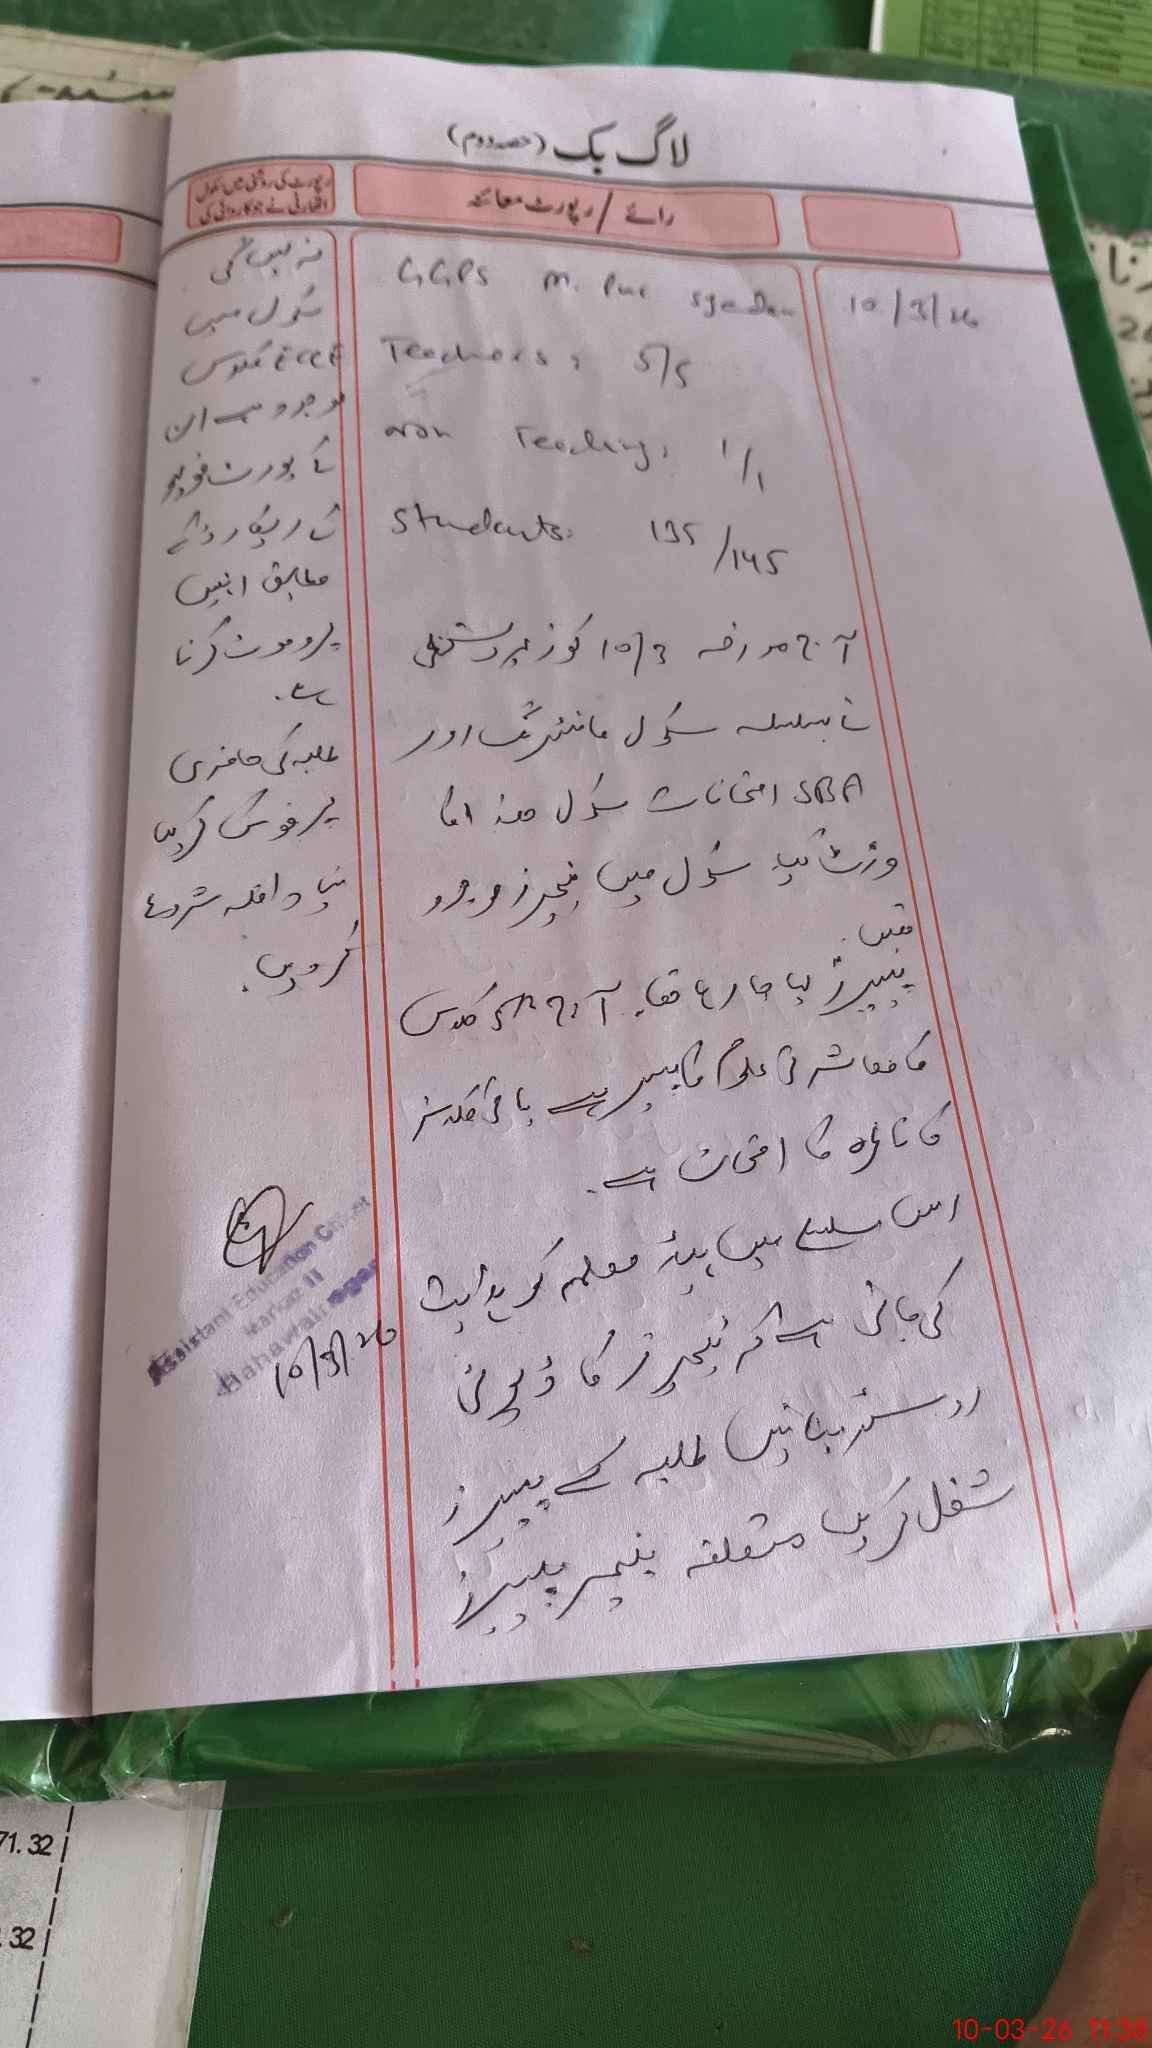 لاگ بک (حصہ دوم)
رائے / رپورٹ معائنہ
رپورٹ کی روشنی میں سکول
اتھارٹی نے جو کاروائی کی
10/3/26
GGPS M. Pur Syedan
Teachers: 5/5
Non Teaching: 1/1
Students: 135/145
آج مورخہ 10/3 کو زیر دستخطی
نے بسلسلہ سکول مانیٹرنگ اور
SBA امتحانات سکول ھذا کا
وزٹ کیا۔ سکول میں ٹیچرز موجود
تھیں۔
پیپرز لیا جا رہا تھا۔ آج 5th کلاس
کا معاشرتی علوم کا پیپر ہے باقی کلاسز
کا ناظرہ کا امتحان ہے۔
اس سلسلے میں ہیڈ معلمہ کو ہدایت
کی جاتی ہے کہ ٹیچرز کا ڈیوٹی
روسٹر بنائیں طلبہ کے پیپرز
شفل کریں متعلقہ ٹیچر پیپرز
نہ لیں گی
سکول میں
ECCE کلاس
موجود ہے ان
کے پورٹ فولیو
کے ریکارڈ کے
مطابق انہیں
پروموٹ کرنا
ہے۔
طلبہ کی حاضری
پر فوکس کریں
نیا داخلہ شروع
کر دیں۔
Assistant Education Officer
Markaz II
Bahawalnagar
10/3/26
71.32
.32
10-03-26 11:38